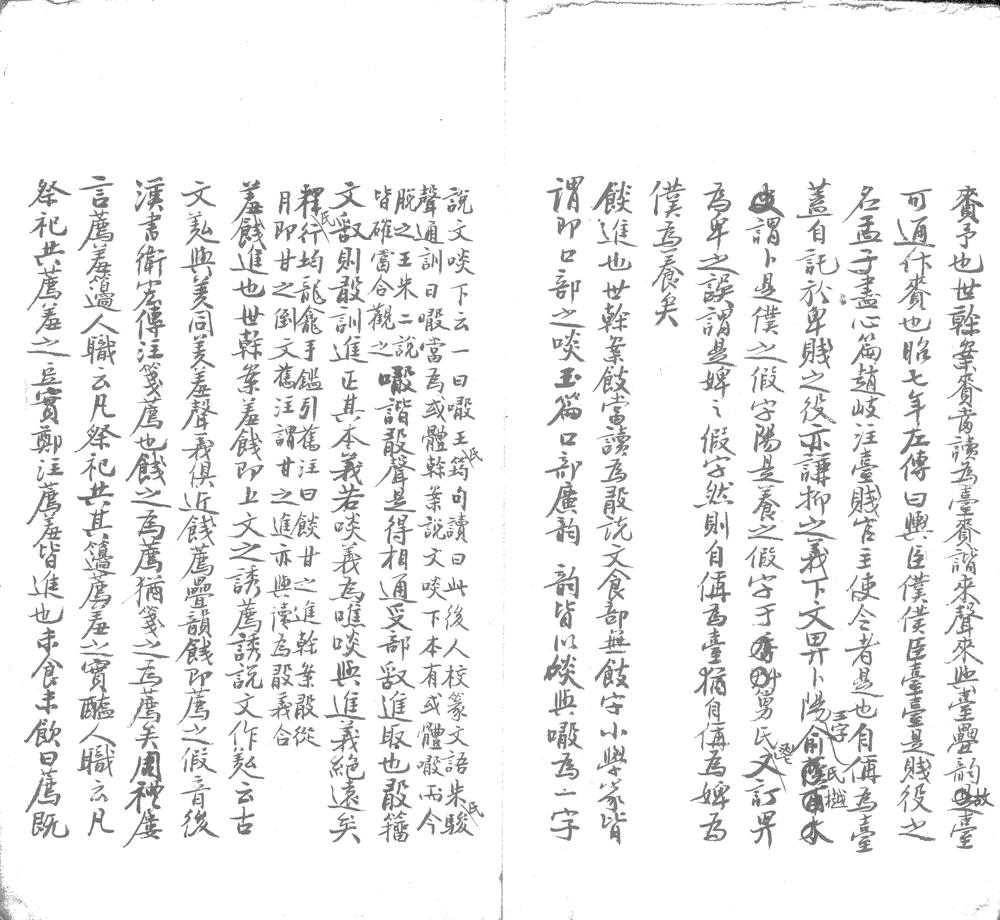 賚予也世榦案賚當讀為臺賚諧來聲來與臺疊韻故臺
可通作賚也昭七年左傳曰輿臣僕僕臣臺臺是賤役之
名孟子盡心篇趙岐注臺賤官主使令者是也自偁為臺
蓋自託於卑賤之役亦謙抑之義下文畀卜陽俞氏樾
謂卜是僕之假字陽是養之假字于鬯舅氏又訂畀
為卑之誤謂是婢之假字然則自偁為臺猶自偁為婢為
僕為養矣
餤進也世榦案餤當讀為敢說文食部無餤字小學家皆
謂即口部之啖玉篇口部廣韵 韵皆以啖與噉為一字
說文啖下云一曰噉王氏筠句讀曰此後人校篆文語朱氏駿
聲通訓曰噉當為或體榦案說文啖下本有或體噉而今
脫之王朱二說皆確當合觀之噉諧敢聲是得相通𠬪部𠭖進取也敢籀
文𠭖則敢訓進正其本義若啖義為噍啖與進義絕遠矣
釋行均龍龕手鑑引舊注曰餤甘之進榦案敢從
月即甘之倒文舊注謂甘之進亦與讀為敢義合
羞餞進也世榦案羞餞即上文之誘薦誘說文作羑云古
文羑與羑同羑羞聲義俱近餞薦疊韻餞即薦之假音後
漢書衛宏傳注箋薦也餞之為薦猶箋之為薦矣周禮屢
言薦羞籩人職云凡祭祀共其籩薦羞之實醢人職云凡
祭祀共薦羞之豆實鄭注薦羞皆進也未食未飲曰薦既